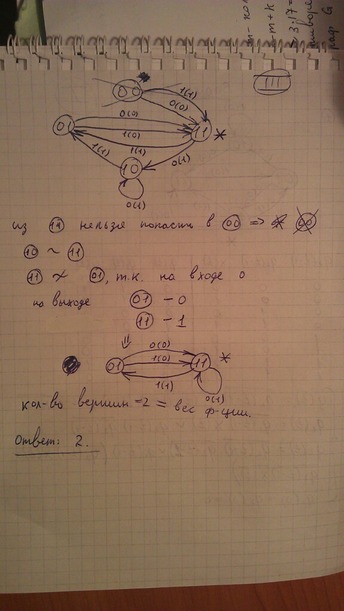 m - кол
- m + k
= 3.17 =
III
00
1(1)
0(0)
01
0(0)
1(0)
11
*
1(1)
1(1)
10
0(1)
0(1)
из 11 нельзя попасть в 00 => 00
10 ~ 11
11 ≁ 01, т.к. на входе 0
на выходе 01 - 0
11 - 1
⇓
0(0)
01
1(0)
11
*
1(1)
0(1)
кол-во вершин = 2 = вес ф-ции.
Ответ: 2.